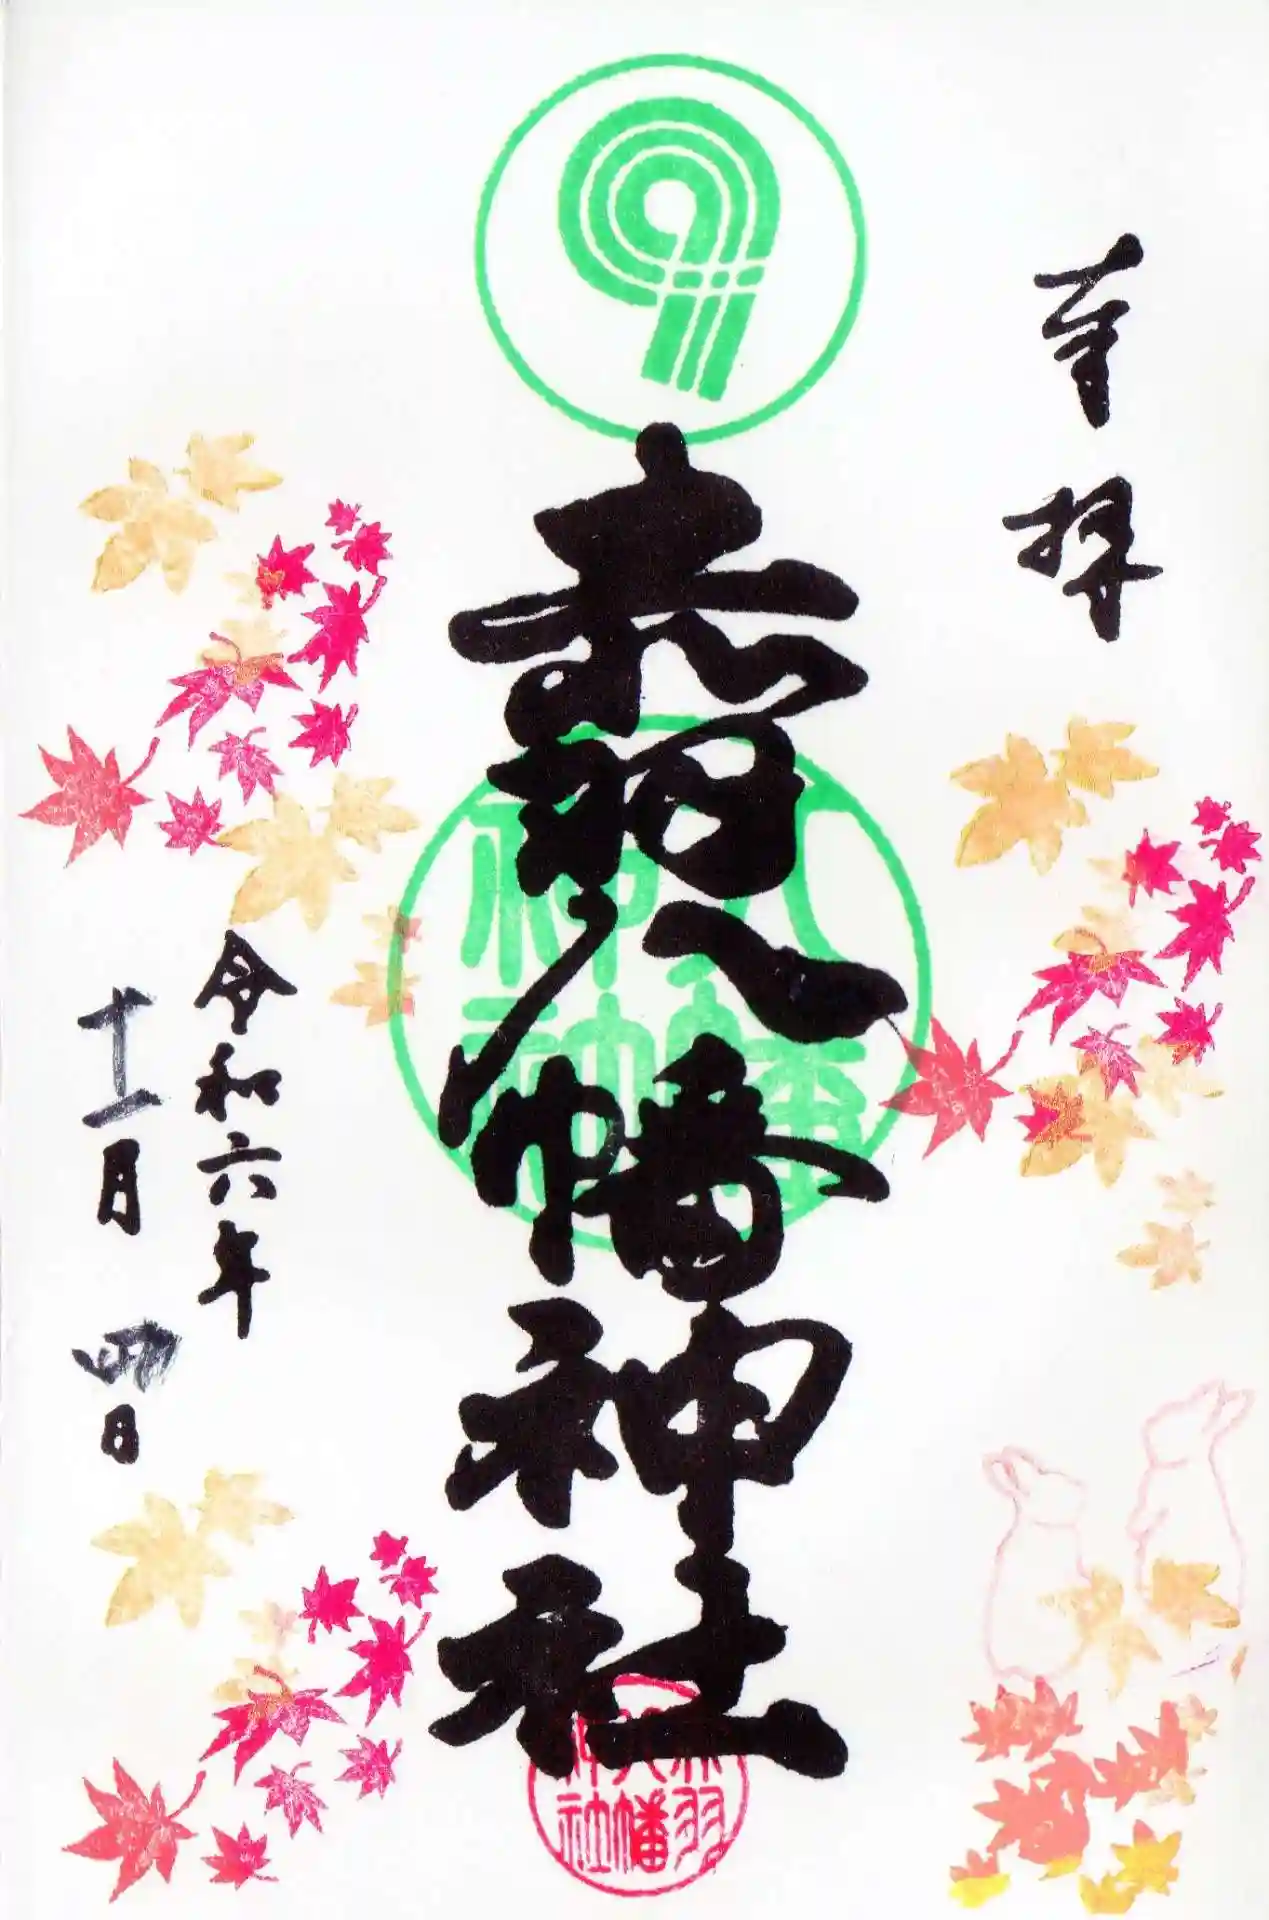 奉拝
赤羽八幡神社
八幡
神社
赤羽
八幡
神社
令和六年
十一月四日